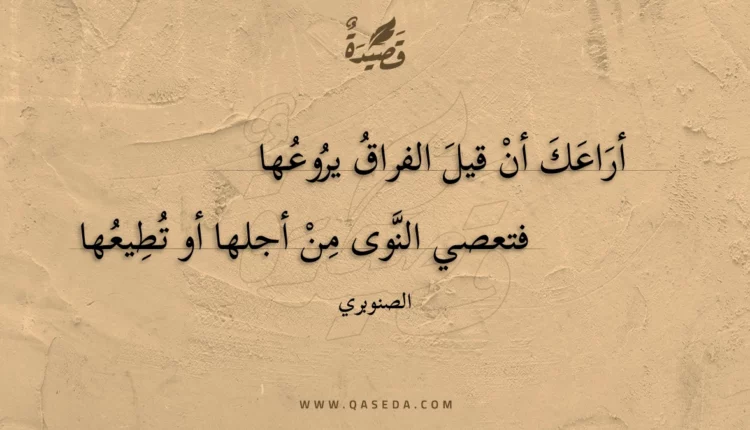 قَصِيدَةٌ
أرَاعَكَ أنْ قيلَ الفراقُ يرُوعُها
فتعصي النَّوى مِنْ أجلها أو تُطِيعُها
الصنوبري
WWW.QASEDA.COM